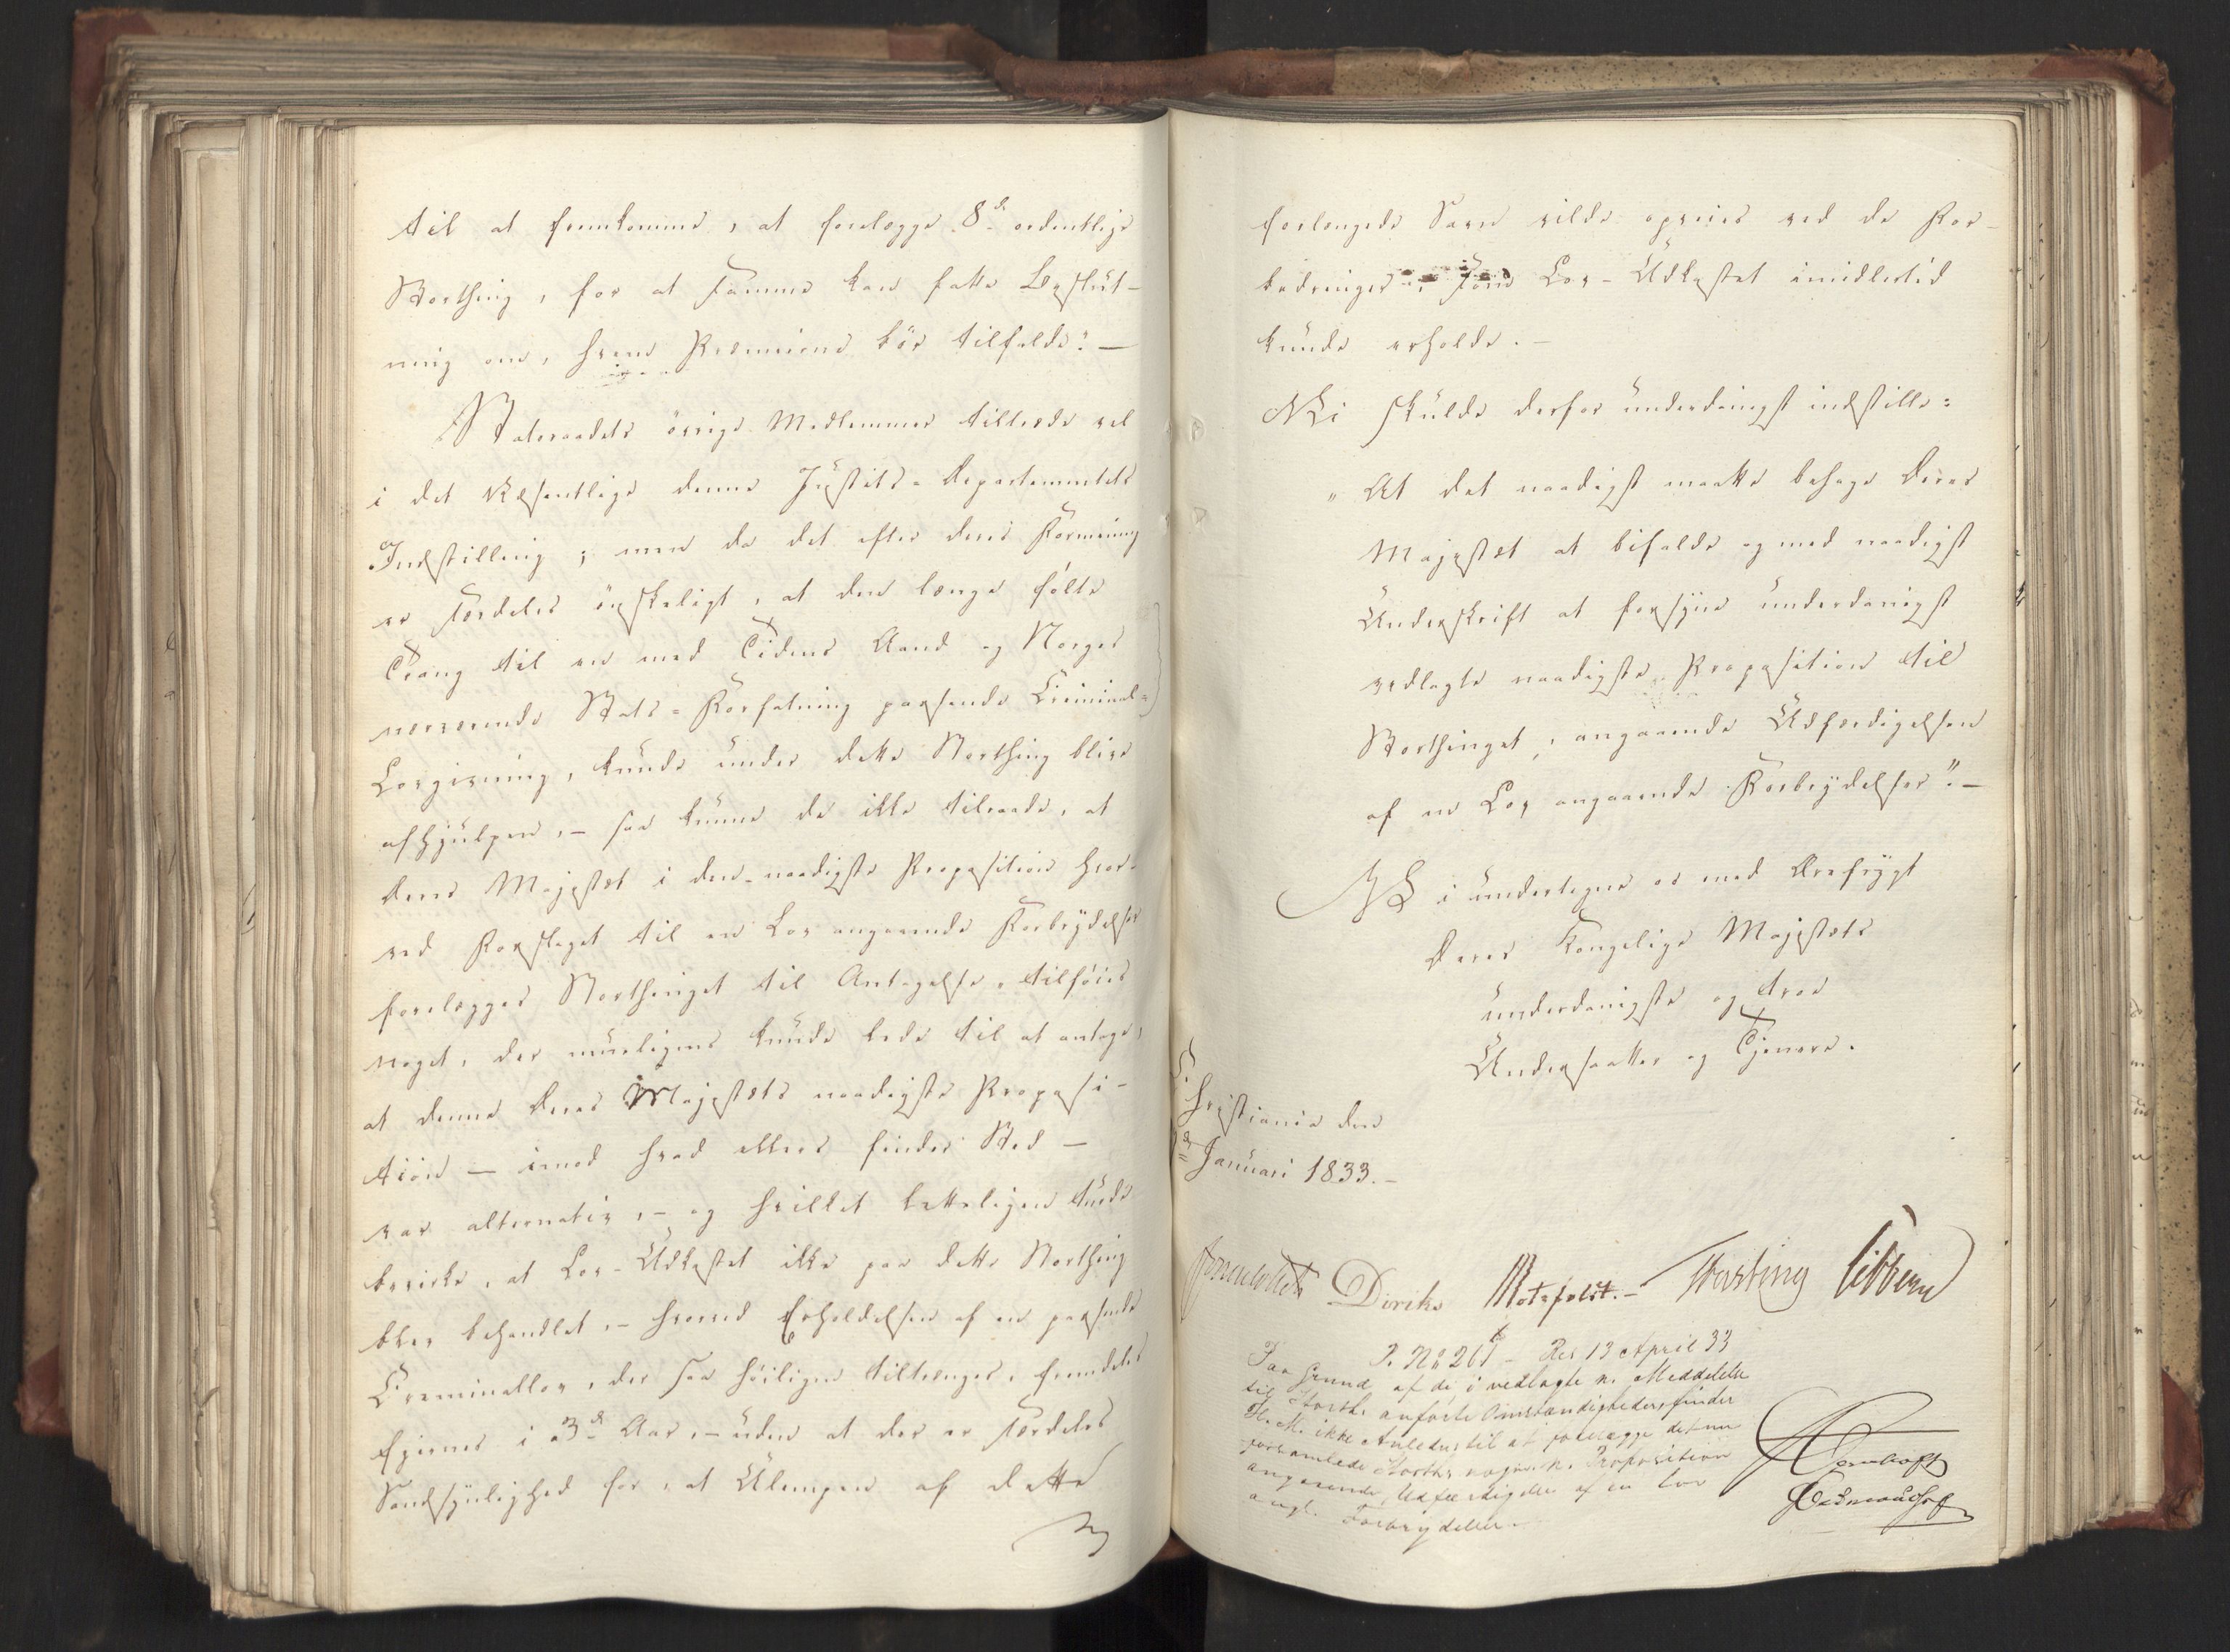 til at fremkomme, at forelægge 8de ordentlige
Storthing, for at samme kan fatte Beslut-
ning om, hvem Præmierne bör tilfalde:" —
Statsraadets övrige Medlemmer tiltræde vel
i det Væsentlige denne Justits-Departementets
Indstilling; men da det efter deres Formening
er særdeles önskeligt, at den længe fölte
Trang til en med Tidens Aand og Norges
nærværende Stats-Forfatning passende Criminal-
Lovgivning, kunde under dette Storthing blive
afhjulpen, – saa kunne de ikke tilraade, at
Deres Majestæt i den naadigste Proposition hvor-
ved Forslaget til en Lov angaaende Forbrydelser
forelægges Storthinget til Antagelse, tilföies
noget, der mueligens kunde lede til at antage,
at denne Deres Majestæts naadigste Proposi-
tion – imod hvad ellers finder Sted –
var alternativ, – og hvilket letteligen turde
bevirke, at Lov-Udkastet ikke paa dette Storthing
blev behandlet, – hvorved Erholdelsen af en passende
Criminallov, der saa höiligen tiltrænges, fremdeles
fjernes i 3de Aar, – uden at der er særdeles
Sandsynlighed for, at Ulempen af dette
forlængede Savn vilde opveies ved de For-
bedringer, som Lov-Udkastet imidlertid
kunde erholde. –
Vi skulde derfor underdanigst indstille:
"At det naadigst maatte behage Deres
Majestæt at bifalde og med naadigst
Underskrift at forsyne underdanigst
vedlagte naadigste Proposition til
Storthinget, angaaende Udfærdigelsen
af en Lov angaaende Forbrydelser". –
Vi undertegne os med Ærefrygt
Deres Kongelige Majestæts
underdanigste og troe
Undersaatter og Tjenere.
Christiania den
Januari 1833. –
Diriks Motzfeldt. – Fasting Sibbern
P. No 261 – Res 13 April 33
Paa Grund af de i vedlagte n. Meddelelse
til Storth. anförte Omstændigheder, finder
H. M. ikke Anledng til at forelægge det nu
forsamlede Storthg nogen n. Proposition
angaaende Udfærdigelse af en Lov
angl. Forbrydelser. –